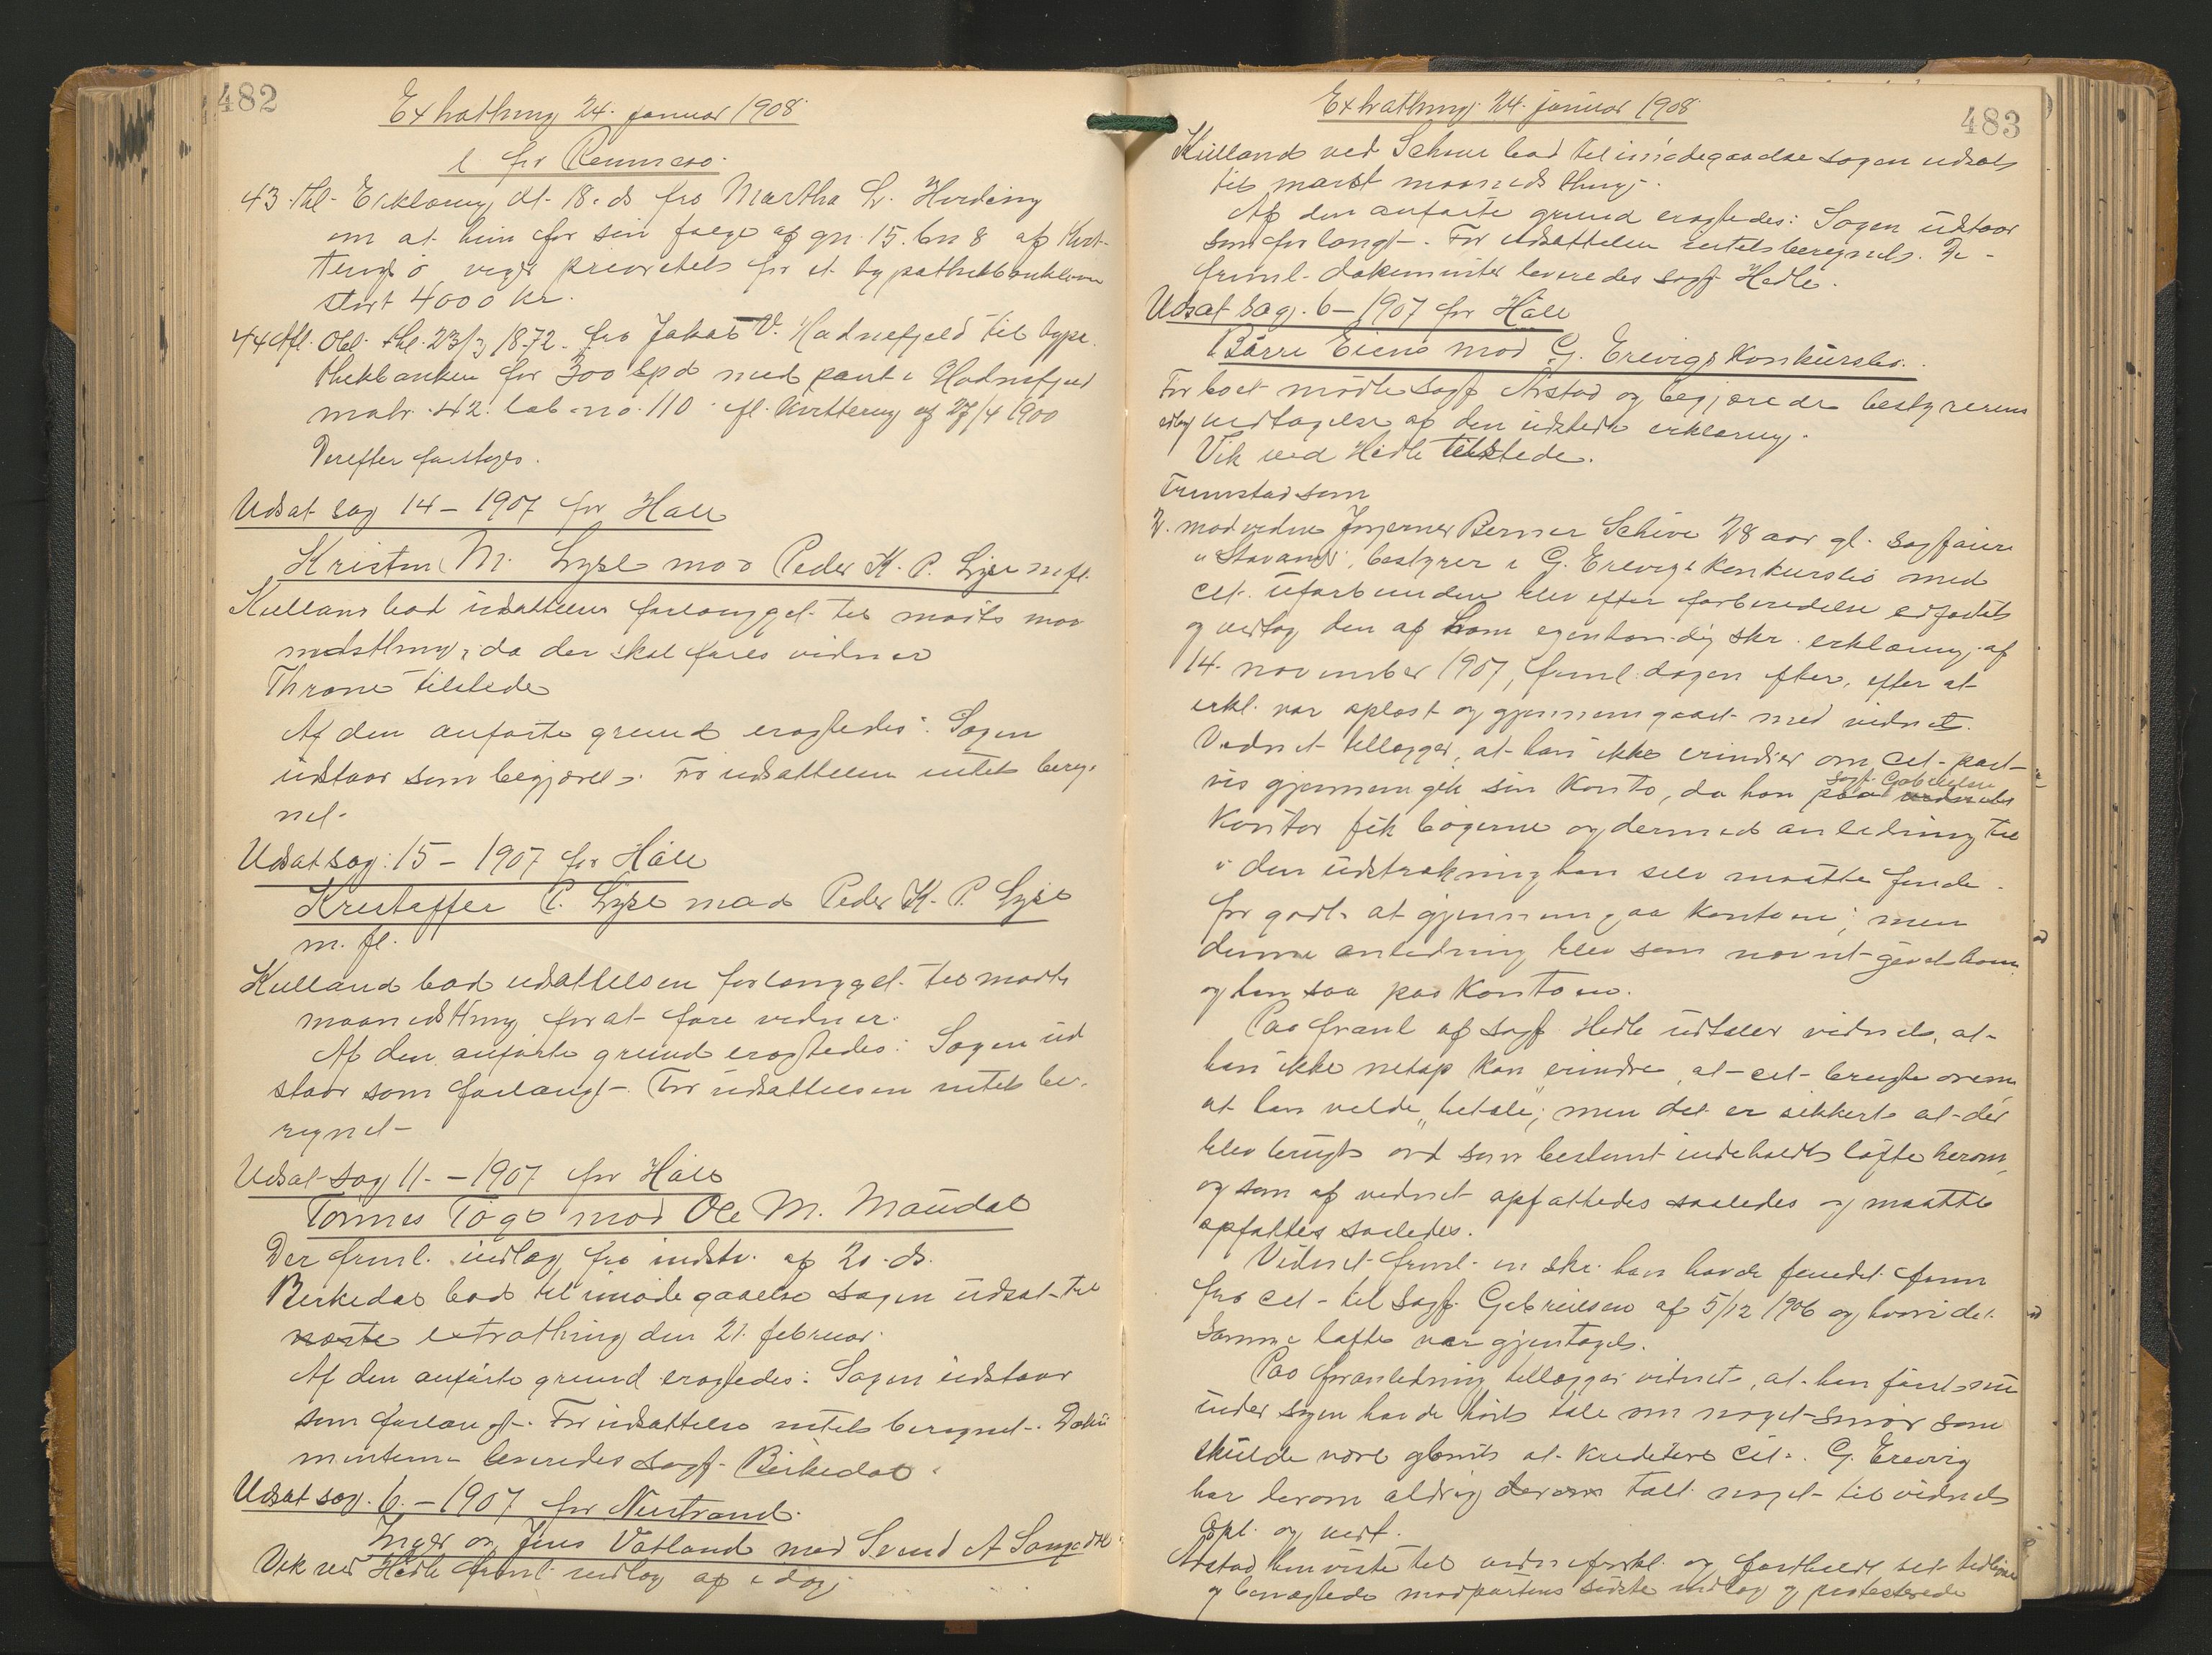 482
Extrathing 24. januar 1908
i for Rennesø.
43. thl. Erklæring dt. 18. ds fra Martha Hr. Hording
om at hun for sin part af gn 15. bn 8 af
viger prioritets for et hypothekbanklaan
stort 4000 kr.
44 Afl. Obl. thl. 23/3 1872. fra Jakob V. Hodnefjeld til hypo-
thekbanken for 300 Spd med pant i Hodnefjeld
matr. 42. løb-no. 110 ifl. kvittering af 27/4 1900
Derefter fastoges.
Udsat sag 14 – 1907 for Høle
Kristen M. Lyse mod Peder K. P. Lyse m. fl.
Kielland bad udsættelsen forlænget til marts maa-
nedsthing, da der skal føres vidner
Throne tilstede
Af den anførte grund eragtedes: Sagen
udstaar som begjæret. For udsættelsen intet bereg-
net.
Udsat sag: 15 – 1907 for Høle
Kristoffer P. Lyse mod Peder K. P. Lyse
m. fl.
Kielland bad udsættelsen forlænget til marts
maanedsthing for at føre vidner.
Af den anførte grund eragtedes: Sagen ud
staar som forlangt. For udsættelsen intet be-
regnet
Udsat sag 11. – 1907 for Høle
Tønnes Tøgo mod Ole M. Maudal
Der freml. indlæg fra indst. af 20. ds.
Birkedal bad til imødegaaelse sagen udsat til
næste extrathing den 21. februar.
Af den anførte grund eragtedes: Sagen udstaar
som forlangt. For udsættelse intet beregnet. Doku
menterne leveredes sagf. Birkedal.
Udsat sag. 6. – 1907 for Nerstrand.
Inger og Jens Vatland mod Svend A
Vik ved Hedle freml. indlæg af i dag
Extrathing 24. januar 1908
483
Kielland ved Schive bad til imødegaaelse sagen udsat
til marts maaneds thing.
Af den anførte grund eragtedes: Sagen udstaar
som forlangt. For udsættelsen intet beregnet. De
freml. dokumenter leveredes sagf. Hedle.
Udsat sag. 6 – 1907 for Høle
Børre Eiene mod G. Erevigs konkursbo.
For boet mødte sagf. Årstad og begjærede bestyrerens
edlig vedtagelse af den udstedte erklæring.
Vik ved Hedle tilstede.
Fremstod som
2. modvidne Jørgen Berner Schive 28 aar gl. sagfører
i Stavanger, bestyrer i G. Ereviks konkursbo med
cit. uforbunden blev efter forberedelse edfæstet
og vedtog den af ham egenhændig skr. erklæring af
14. november 1907, freml. dagen efter, efter at
erkl. var oplæst og gjennemgaaet med vidnet.
Vidnet tillægger, at han ikke erindrer om cit. post-
vis gjennemgik sin konto, da han paa sagf. Gabrielsens
kontor fik bøgerne og dermed anledning til
i den udstrækning han selv maatte finde
for godt at gjennemgaa kontoen; men
denne anledning blev som nævnt givet ham
og han saa paa kontoen.
Paa foranl. af sagf. Hedle udtaler vidnet, at
han ikke netop kan erindre, at cit. brugte ordene
at han vilde „betale", men det er sikkert at der
blev brugt ord som bestemt indeholdt løfte herom,
og som af vidnet opfattedes saaledes og maatte
opfattes saaledes.
Vidnet freml. en skr. han havde fundet frem
fra cit. til sagf. Gabrielsen af 5/12 1906 og hvori det
samme løfte var gjentaget.
Paa foranledning tillægger vidnet, at han først nu
under sagen havde hørt tale om noget smør som
skulde være glemt at kreditere cit. G. Erevig
har derom aldrig talt noget til vidnet
Opl. og vedt.
Årstad henviste til vidneforkl. og fastholdt sit tidligere
og benægtede modpartens sidste indlæg og protesterede